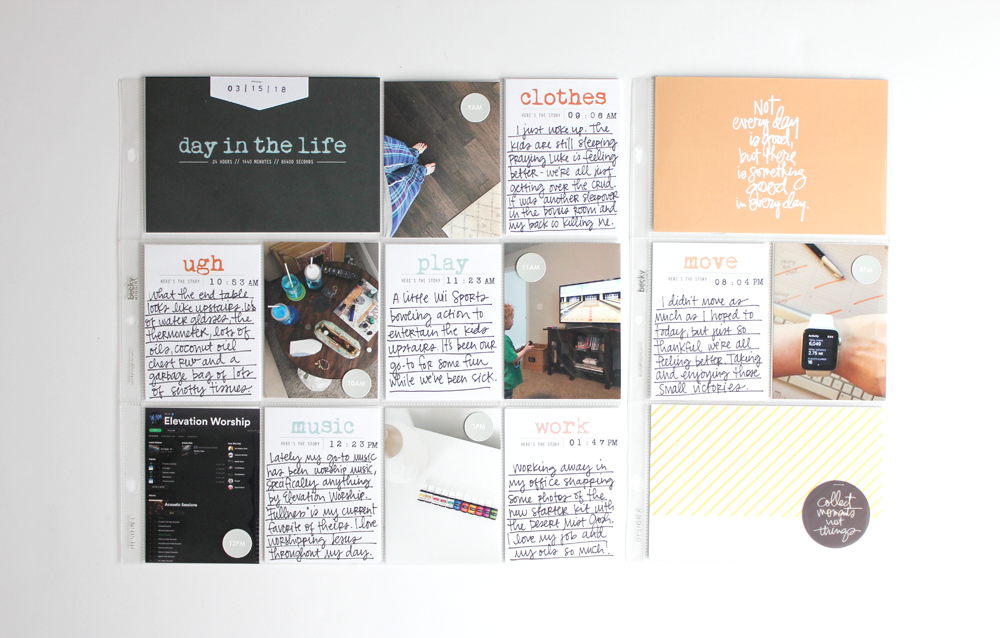 03|15|18
day in the life
24 HOURS // 1440 MINUTES // 86400 SECONDS
9AM
clothes
HERE'S THE STORY 09:06 AM
I just woke up. The
kids are still sleeping.
Praying Luke is feeling
better - we're all just
getting over the crud.
It was another sleepover
in the bonus room and
my back is killing me.
Not
every day
is good,
but there
is something
good
in every day.
ugh
HERE'S THE STORY 10:53 AM
What the end table
looks like upstairs. lots
of water glasses, the
thermometer, lots of
oils, coconut oil
chest rub and a
garbage bag of lots
of snotty tissues.
10AM
play
HERE'S THE STORY 11:23 AM
A little Wii Sports
bowling action to
entertain the kids
upstairs. It's been our
go-to for some fun
while we've been sick.
11AM
becky
move
HERE'S THE STORY 08:04 PM
I didn't move as
much as I hoped to
today, but just so
thankful we're all
feeling better. Taking
and enjoying those
small victories.
8PM
6,049
2.75 MI
16
Elevation Worship
Acoustic Sessions
12PM
music
HERE'S THE STORY 12:23 PM
Lately my go-to music
has been worship music,
specifically anything
by Elevation Worship.
"Fullness" is my current
favorite of theirs. I love
worshipping Jesus
throughout my day.
1PM
work
HERE'S THE STORY 01:47 PM
Working away in
my office snapping
some photos of the
new starter kit with
the Desert Mist
I love my job and
my oils so much!
collect
moments
not
things